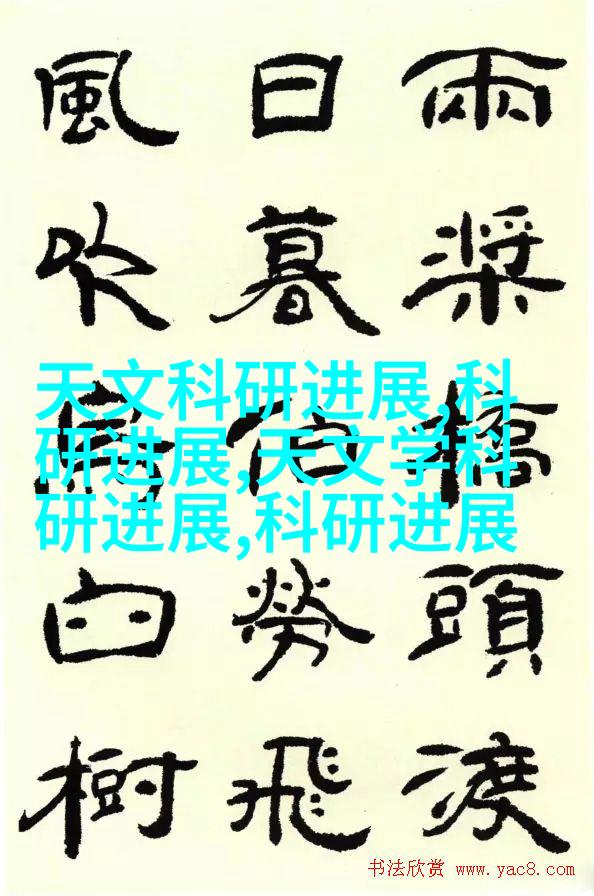 兩槳橋頭渡
日暮伯勞飛
風吹烏臼樹
天文科研进展,科
研进展,天文学科
研进展,科研进展
书法欣赏 www.yac8.com